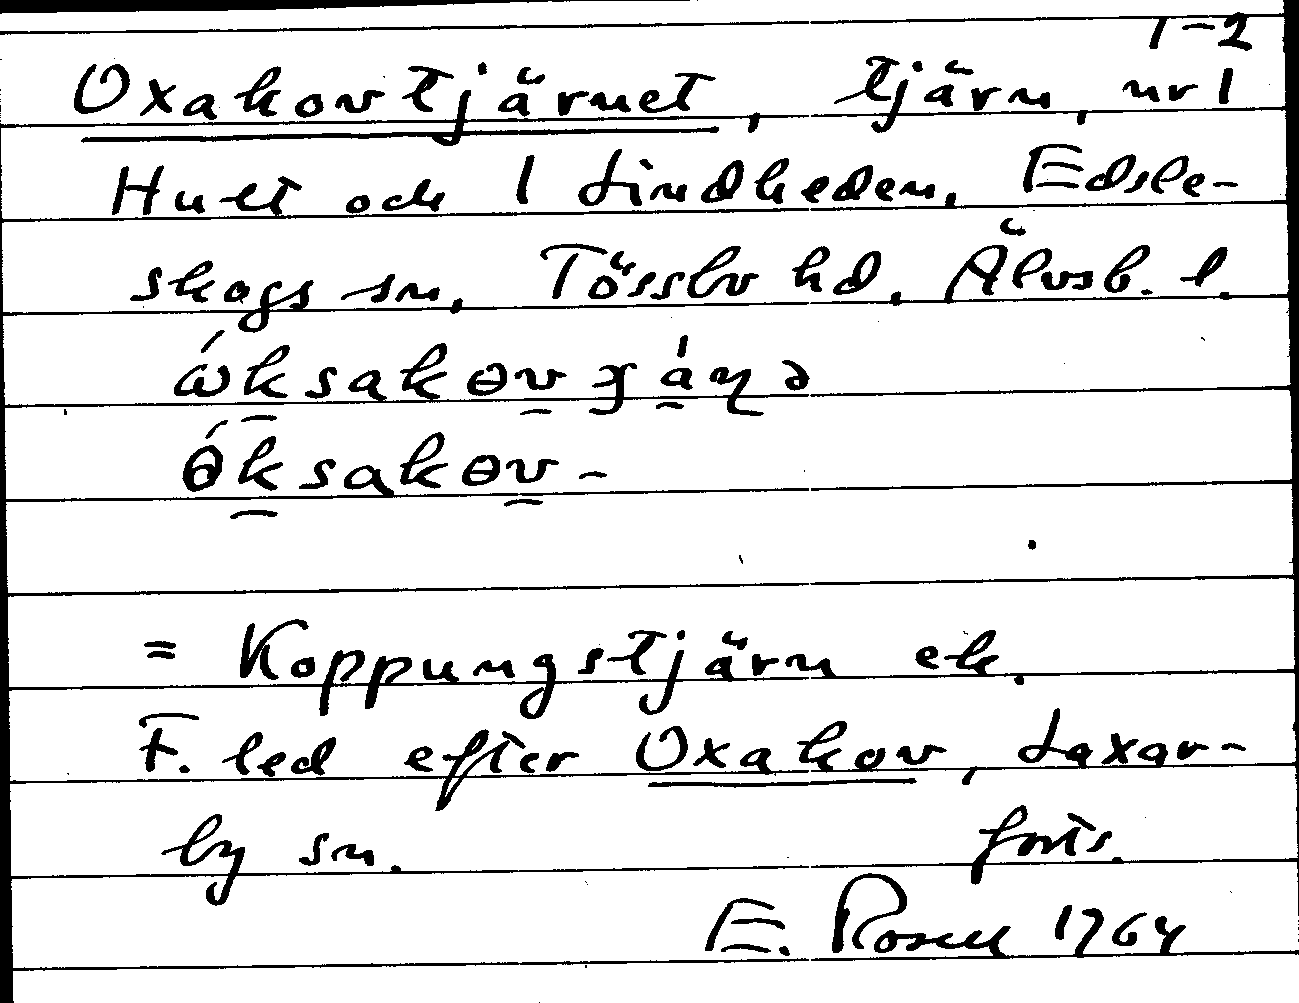 1-2
Oxakovtjärnet, tjärn, nr 1
Hult och 1 Lindheden, Edsle-
skogs sn, Tössbo hd. Älvsb. l.
= Koppungstjärn ek.
F. led efter Oxakov, Laxar-
by sn. forts.
E. Rosell 1964